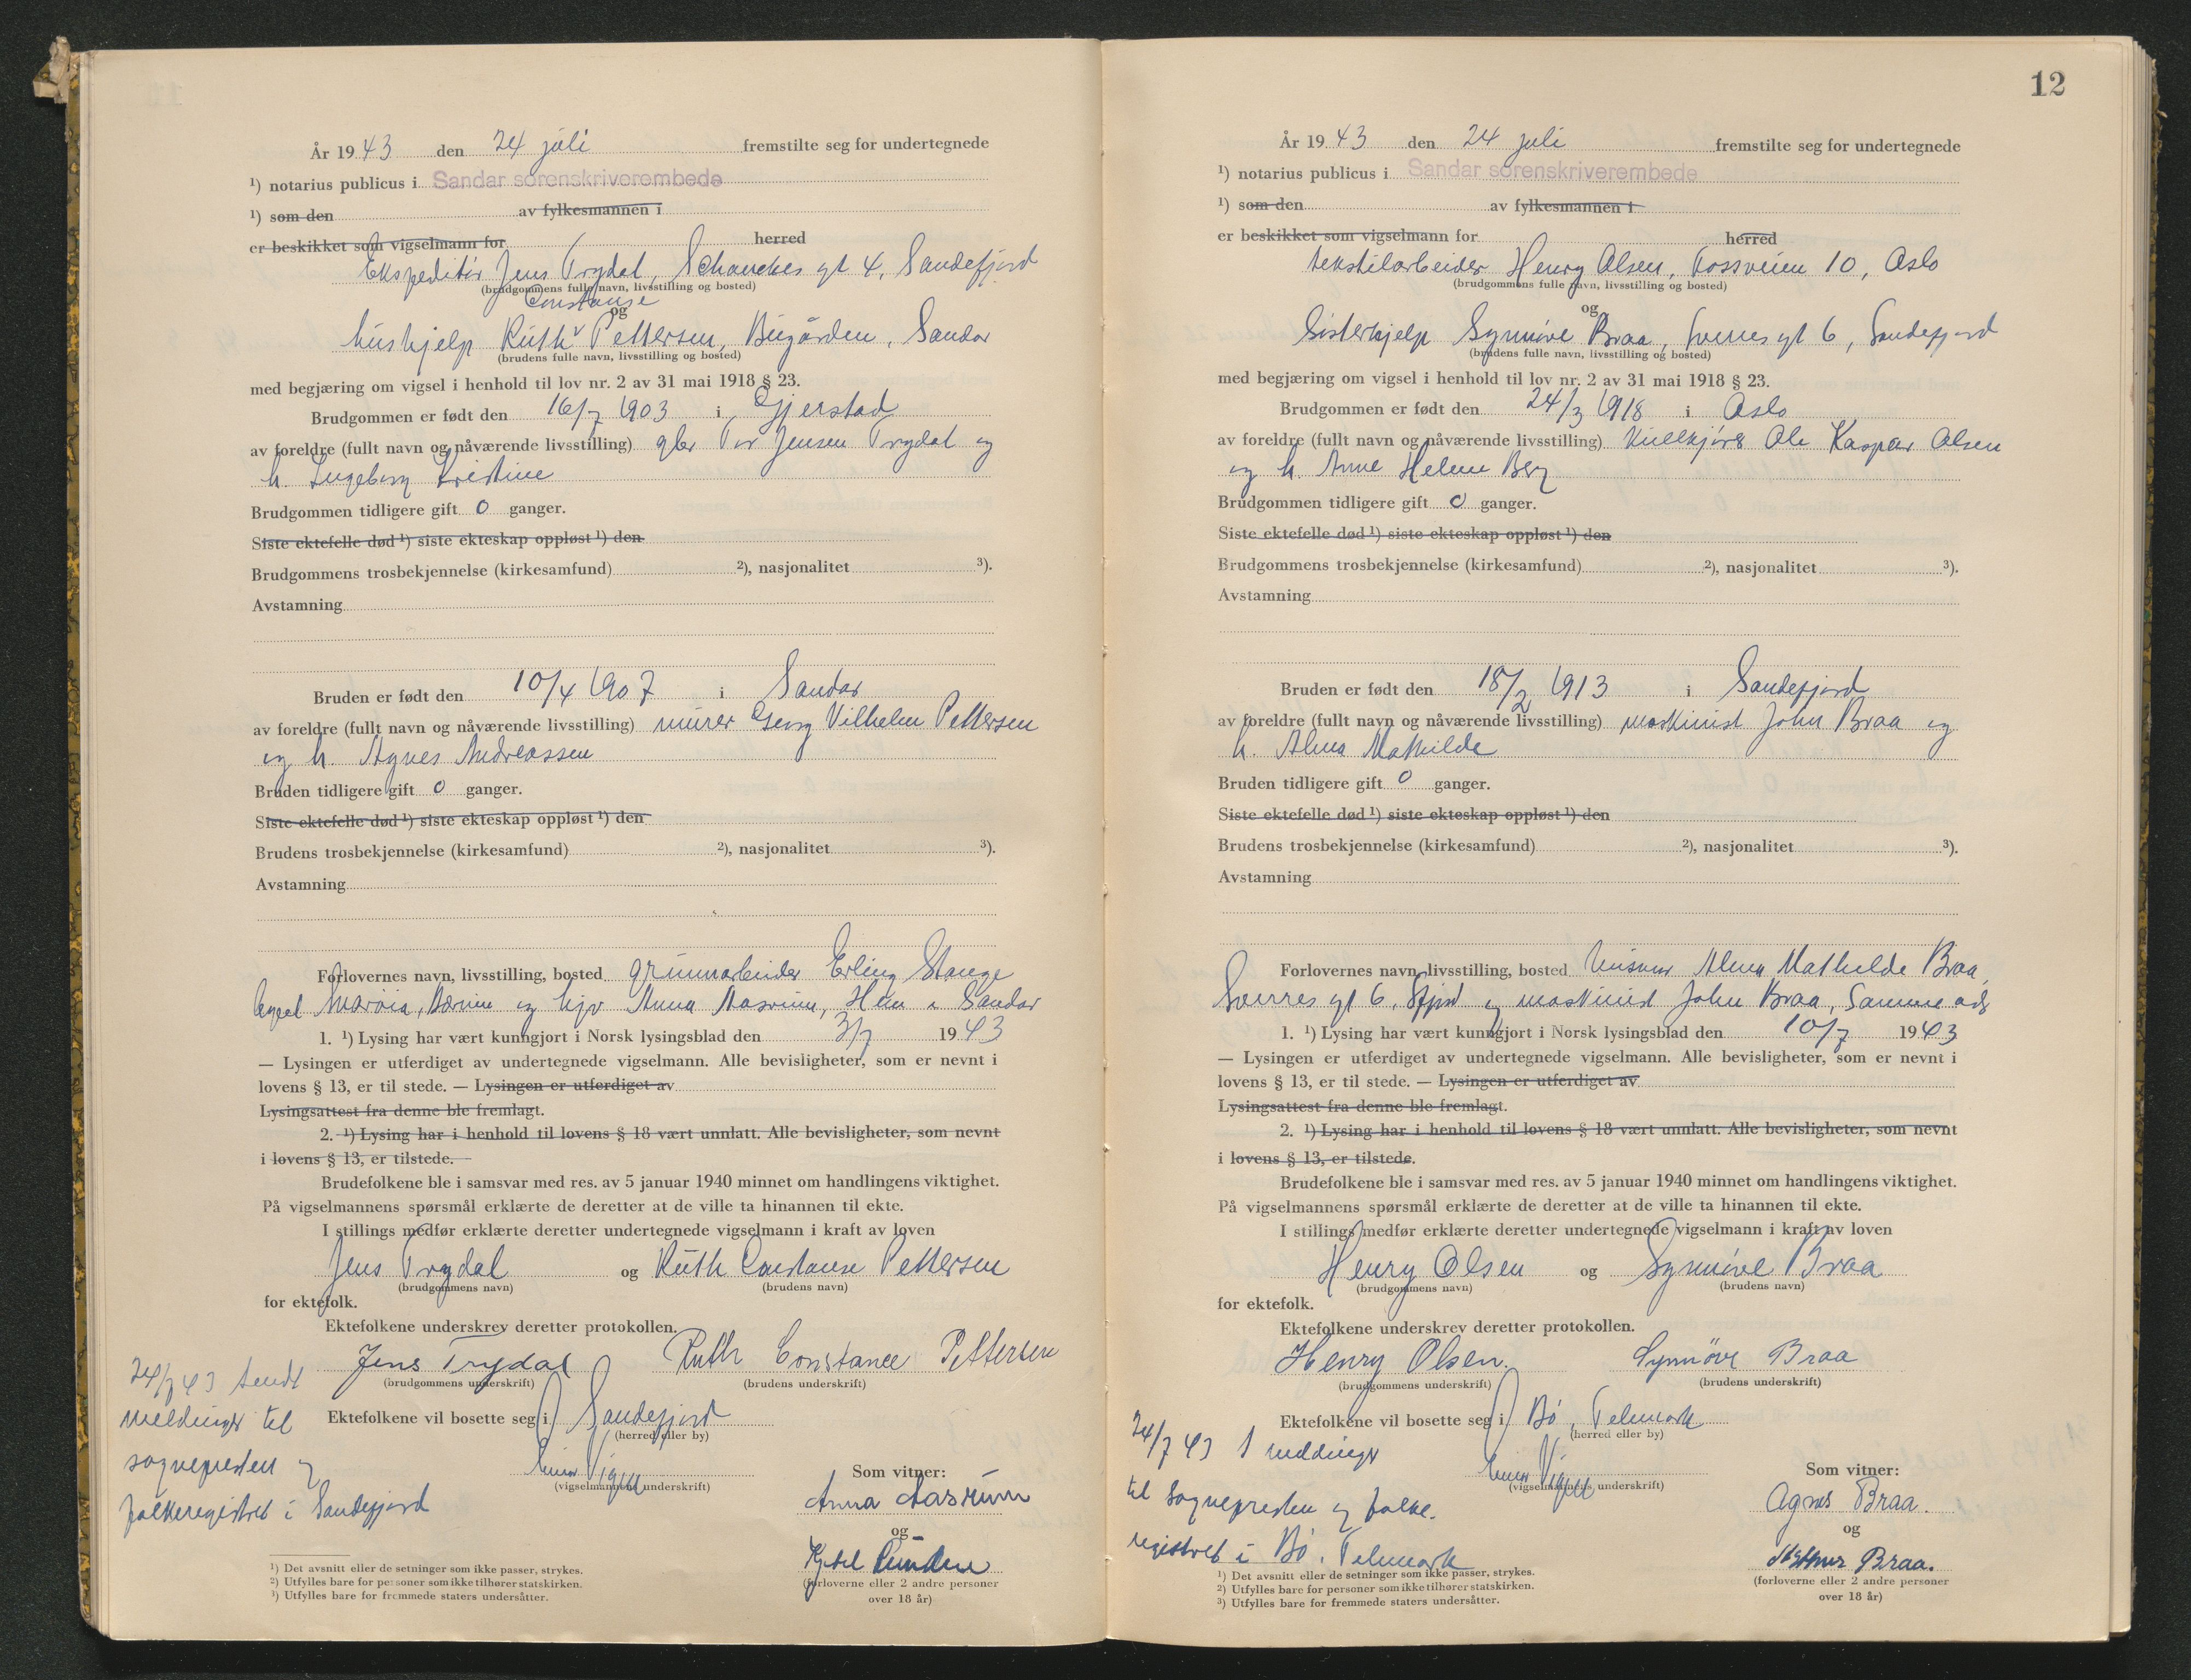 År 1943 den 24 juli fremstilte seg for undertegnede
¹) notarius publicus i Sandar sorenskriverembede
¹) som den av fylkesmannen i
er beskikket som vigselmann for herred
Ekspeditør Jens Trydal, Schanckes gt 4, Sandefjord
(brudgommens fulle navn, livsstilling og bosted)
Constanse
og
hushjelp Ruth Pettersen, Bugården, Sandar
(brudens fulle navn, livsstilling og bosted)
med begjæring om vigsel i henhold til lov nr. 2 av 31 mai 1918 § 23.
Brudgommen er født den 16/7 1903 i Gjerstad
av foreldre (fullt navn og nåværende livsstilling) gbr Tor Jensen Trydal og
h. Ingeborg Kristine
Brudgommen tidligere gift 0 ganger.
Siste ektefelle død ¹) siste ekteskap oppløst ¹) den
Brudgommens trosbekjennelse (kirkesamfund) ²), nasjonalitet ³).
Avstamning
Bruden er født den 10/4 1907 i Sandar
av foreldre (fullt navn og nåværende livsstilling) murer Georg Vilhelm Pettersen
og h. Agnes Andreassen
Bruden tidligere gift 0 ganger.
Siste ektefelle død ¹) siste ekteskap oppløst ¹) den
Brudens trosbekjennelse (kirkesamfund) ²), nasjonalitet ³).
Avstamning
Forlovernes navn, livsstilling, bosted grunnarbeider Erling Stange
Bærum og Anna Aasrum, Hem i Sandar
1. ¹) Lysing har vært kunngjort i Norsk lysingsblad den 3/7 1943
— Lysingen er utferdiget av undertegnede vigselmann. Alle bevisligheter, som er nevnt i
lovens § 13, er til stede. — Lysingen er utferdiget av
Lysingsattest fra denne ble fremlagt.
2. ¹) Lysing har i henhold til lovens § 18 vært unnlatt. Alle bevisligheter, som nevnt
i lovens § 13, er tilstede.
Brudefolkene ble i samsvar med res. av 5 januar 1940 minnet om handlingens viktighet.
På vigselmannens spørsmål erklærte de deretter at de ville ta hinannen til ekte.
I stillings medfør erklærte deretter undertegnede vigselmann i kraft av loven
Jens Trydal og Ruth Constanse Pettersen
(brudgommens navn) (brudens navn)
for ektefolk.
Ektefolkene underskrev deretter protokollen.
Jens Trydal Ruth Constance Pettersen
(brudgommens underskrift) (brudens underskrift)
Ektefolkene vil bosette seg i Sandefjord
(herred eller by)
(vigselmannens underskrift)
Som vitner:
Anna Aasrum
og
(forloverne eller 2 andre personer
over 18 år)
24/7 43 sendt
meldinger til
sognepresten og
folkeregistret i Sandefjord
¹) Det avsnitt eller de setninger som ikke passer, strykes.
²) Utfylles bare for personer som ikke tilhører statskirken.
³) Utfylles bare for fremmede staters undersåtter.
12
År 1943 den 24 juli fremstilte seg for undertegnede
¹) notarius publicus i Sandar sorenskriverembede
¹) som den av fylkesmannen i
er beskikket som vigselmann for herred
tekstilarbeider Henry Olsen, Fossveien 10, Oslo
(brudgommens fulle navn, livsstilling og bosted)
og
Søsterhjelp Synnøve Braa, Sverres gt 6, Sandefjord
(brudens fulle navn, livsstilling og bosted)
med begjæring om vigsel i henhold til lov nr. 2 av 31 mai 1918 § 23.
Brudgommen er født den 24/3 1918 i Oslo
av foreldre (fullt navn og nåværende livsstilling) Kullkjører Ole Kaspar Olsen
og h. Anne Helene Berg
Brudgommen tidligere gift 0 ganger.
Siste ektefelle død ¹) siste ekteskap oppløst ¹) den
Brudgommens trosbekjennelse (kirkesamfund) ²), nasjonalitet ³).
Avstamning
Bruden er født den 18/2 1913 i Sandefjord
av foreldre (fullt navn og nåværende livsstilling) maskinist John Braa og
h. Alma Mathilde
Bruden tidligere gift 0 ganger.
Siste ektefelle død ¹) siste ekteskap oppløst ¹) den
Brudens trosbekjennelse (kirkesamfund) ²), nasjonalitet ³).
Avstamning
Forlovernes navn, livsstilling, bosted husmor Alma Mathilde Braa,
Sverres gt 6, Sfjord og maskinist John Braa, samme adr
1. ¹) Lysing har vært kunngjort i Norsk lysingsblad den 10/7 1943
— Lysingen er utferdiget av undertegnede vigselmann. Alle bevisligheter, som er nevnt i
lovens § 13, er til stede. — Lysingen er utferdiget av
Lysingsattest fra denne ble fremlagt.
2. ¹) Lysing har i henhold til lovens § 18 vært unnlatt. Alle bevisligheter, som nevnt
i lovens § 13, er tilstede.
Brudefolkene ble i samsvar med res. av 5 januar 1940 minnet om handlingens viktighet.
På vigselmannens spørsmål erklærte de deretter at de ville ta hinannen til ekte.
I stillings medfør erklærte deretter undertegnede vigselmann i kraft av loven
Henry Olsen og Synnøve Braa
(brudgommens navn) (brudens navn)
for ektefolk.
Ektefolkene underskrev deretter protokollen.
Henry Olsen. Synnöve Braa
(brudgommens underskrift) (brudens underskrift)
Ektefolkene vil bosette seg i Bø, Telemark
(herred eller by)
(vigselmannens underskrift)
Som vitner:
Agnes Braa.
og
Braa.
(forloverne eller 2 andre personer
over 18 år)
24/7 43 s meldinger
til sognepresten og folke-
registret i Bø, Telemark
¹) Det avsnitt eller de setninger som ikke passer, strykes.
²) Utfylles bare for personer som ikke tilhører statskirken.
³) Utfylles bare for fremmede staters undersåtter.